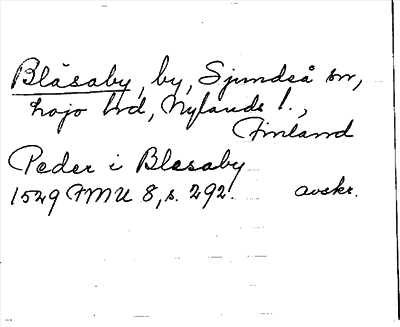 Blåsaby, by, Sjundeå sn,
Lojo hd, Nylands l.,
Finland
Peder i Blasaby
1529 FMU 8, s. 292. avskr.